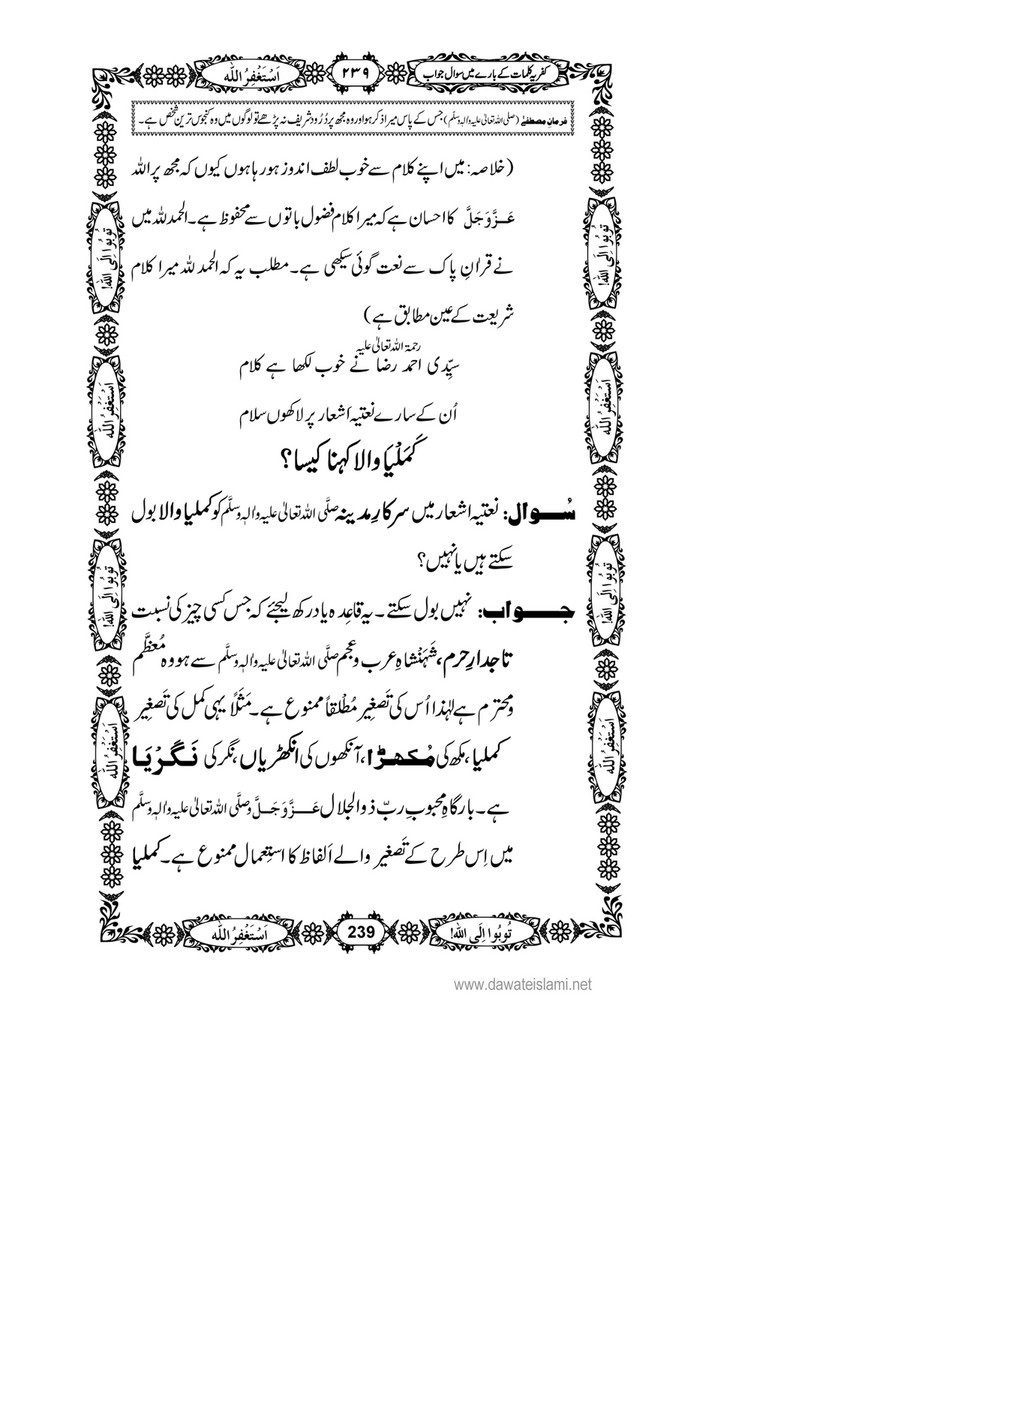 کفریہ کلمات کے بارے میں سوال جواب
۲۳۹
اَسْتَغْفِرُ اللّٰہ
فرمانِ مصطفےٰ (صلی اللہ تعالیٰ علیہ والہٖ وسلم) جس کے پاس میرا ذکر ہوا ور وہ مجھ پر دُرُود شریف نہ پڑھے تو لوگوں میں وہ کنجوس ترین شخص ہے۔
(خلاصہ: میں اپنے کلام سے خوب لطف اندوز ہورہا ہوں کیوں کہ مجھ پر اللہ
عَزَّوَجَلَّ کا احسان ہے کہ میرا کلام فضول باتوں سے محفوظ ہے۔ الحمدللہ میں
نے قراٰنِ پاک سے نعت گوئی سیکھی ہے۔ مطلب یہ کہ الحمد للہ میرا کلام
شریعت کے عین مطابق ہے)
سیِّدی احمد رضا رحمۃ اللہ تعالیٰ علیہ نے خوب لکھا ہے کلام
اُن کے سارے نعتیہ اشعار پر لاکھوں سلام
کَمَلْیَا والا کہنا کیسا؟
سُوال: نعتیہ اشعار میں سرکارِ مدینہ صلَّی اللہ تعالیٰ علیہ واٰلہٖ وسلَّم کو کملیا والا بول
سکتے ہیں یا نہیں؟
جواب: نہیں بول سکتے۔ یہ قاعِدہ یاد رکھ لیجئے کہ جس کسی چیز کی نسبت
تاجدارِ حرم، شَہَنْشاہِ عرب و عجم صلَّی اللہ تعالیٰ علیہ واٰلہٖ وسلَّم سے ہو وہ مُعظَّم
و محترم ہے لہٰذا اُس کی تَصغِیر مُطْلَقاً ممنوع ہے۔ مَثَلاً یہی کمل کی تَصغِیر
کملیا، مکھ کی مُکھڑا، آنکھوں کی انکھڑیاں، نگر کی نَگَرْیَا
ہے۔ بارگاہِ محبوبِ ربِّ ذوالجلال عَزَّوَجَلَّ وصلَّی اللہ تعالیٰ علیہ واٰلہٖ وسلَّم
میں اِس طرح کے تَصغیر والے اَلفاظ کا استِعمال ممنوع ہے۔ کملیا
تُوبُوا اِلَی اللّٰہ!
اَسْتَغْفِرُ اللّٰہ
تُوبُوا اِلَی اللّٰہ!
اَسْتَغْفِرُ اللّٰہ
تُوبُوا اِلَی اللّٰہ!
اَسْتَغْفِرُ اللّٰہ
تُوبُوا اِلَی اللّٰہ!
اَسْتَغْفِرُ اللّٰہ
تُوبُوا اِلَی اللّٰہ!
239
اَسْتَغْفِرُ اللّٰہ
www.dawateislami.net